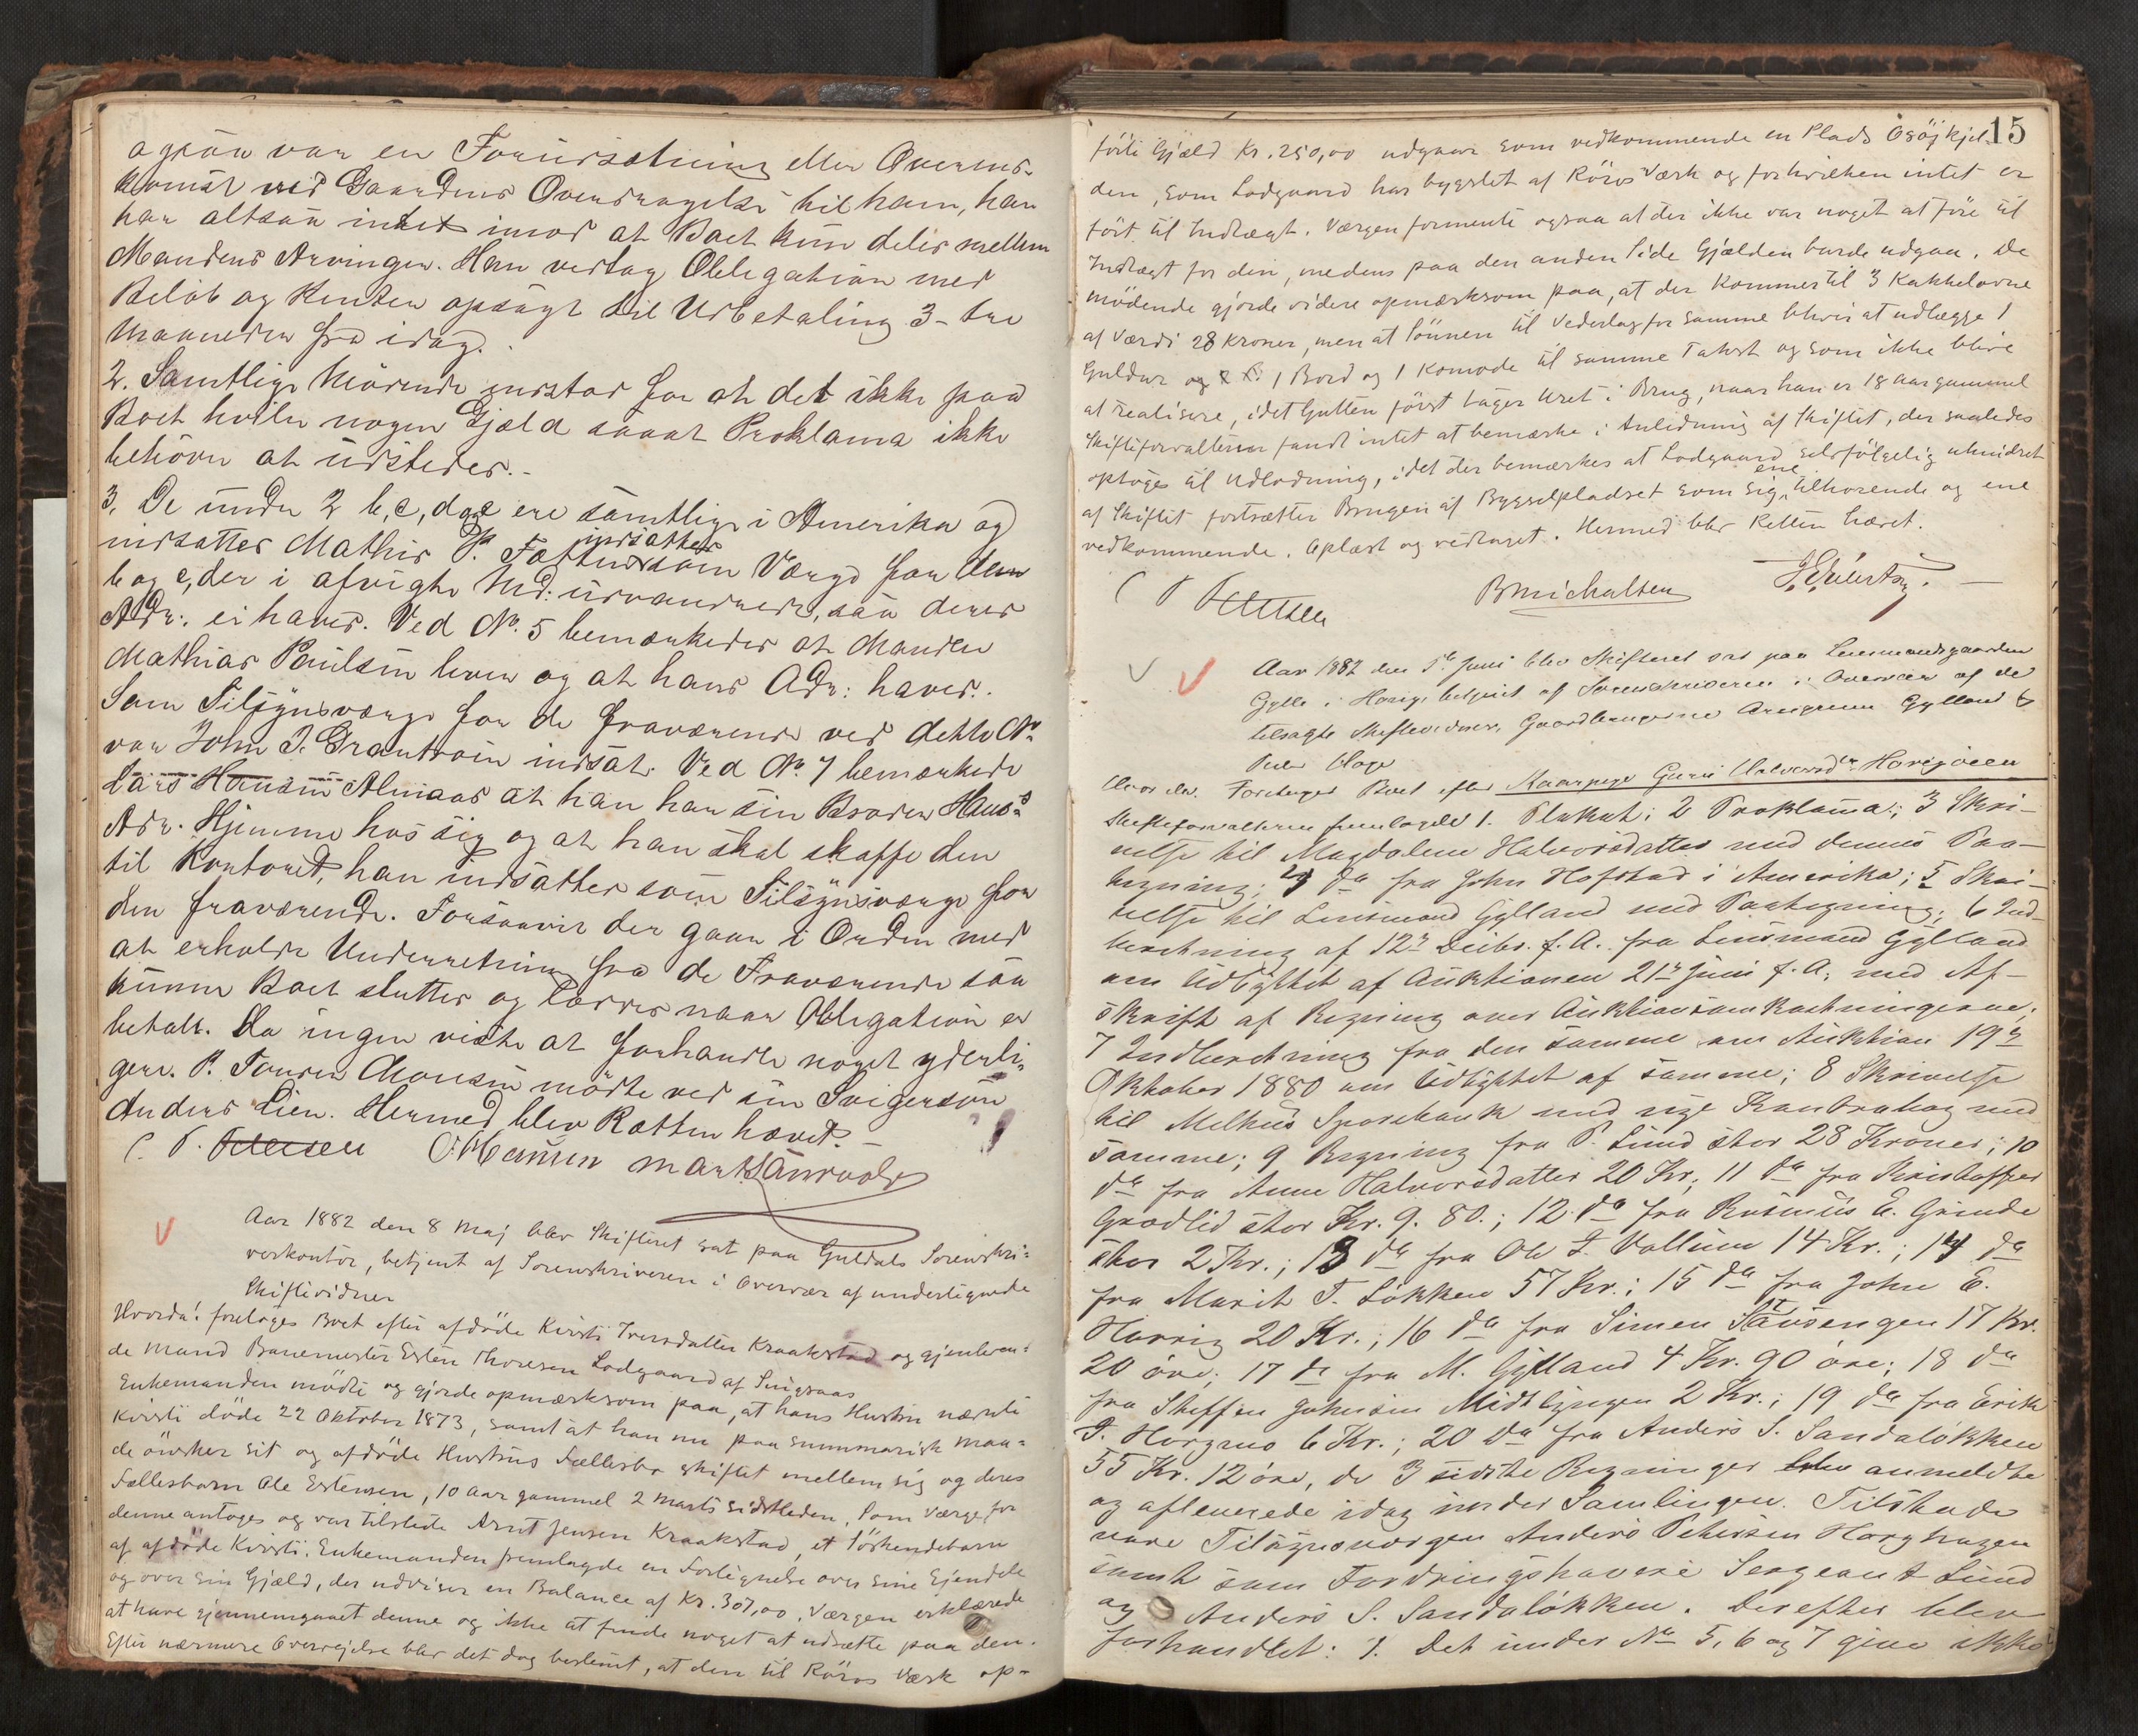 ogsaa var en Forudsætning eller Overens-
komst ved Gaardens Overdragelse til ham, han
har altsaa intet imod at Boet kun deles mellem
Mandens Arvinger. Han vedtog Obligation med
Beløb og Renter opsagt til Udbetaling 3 - tre
Maaneder fra idag.
2. Samtlige Mødende indstod for at det ikke paa
Boet hviler nogen Gjæld saaat Proklama ikke
behøver at udstedes.-
3. De under 2 b, c, d og e ere samtlige i Amerika og
indsattes Mathis P. som Værge for
indsattes
b og c, der i afvigte Md: udvandrede, saa deres
Adr: ei haves. Ved No. 5 bemærkedes at Manden
Mathias Paulsen lever og at hans Adr: haves.
Som Tilsynsværge for de fraværende ved dette No.
var John J. Grantrøen indsat. Ved No. 7 bemærkede
Lars Hansen Almaas at han har sin Broder Hans's
Adr. Hjemme hos sig og at han skal skaffe den
til Kontoret, han indsattes som Tilsynsværge for
den fraværende. Forsaavidt der gaar i Orden med
at erholde Underretning fra de Fraværende saa
kunne Boet sluttes og loddes naar Obligation er
betalt. Da ingen vidste at forhandle noget yderli-
gere. P. Monsen mødte ved sin Svigersøn
Anders Lien. Hermed blev Retten hævet.-
C. P. Petersen O. Hansen
Aar 1882 den 8 Maj blev Skifteret sat paa Guldals Sorenskri-
verkontor, betjent af Sorenskriveren i Overvær af undertegnede
Skiftevidner
Hvorda: foretoges Boet efter afdøde Kirsti Iversdatter Kraakstad og gjenleven-
de Mand Banemester Esten Thoresen Lodgaard af Singsaas
Enkemanden mødte og gjorde opmærksom paa, at hans Hustru nævnte
Kirsti døde 22 Oktober 1873, samt at han nu paa summarisk Maa-
de ønsker sit og afdøde Hustrus Fællesbo skiftet mellem sig og deres
Fællesbarn Ole Estensen, 10 Aar gammel 2 Marts sidstleden. Som Værge for
denne antoges og var tilstede Arnt Jensen Kraakstad, et Søskendebarn
af afdøde Kirsti. Enkemanden fremlagde en Fortegnelse over sine Ejendele
og over sin Gjæld, der udviser en Balance af Kr. 307,00. Værgen erklærede
at have gjennemgaaet denne og ikke at finde noget at udsætte paa den.
Efter nærmere Overvejelse blev det dog bestemt, at den til Røros Værk op-
15
førte Gjæld Kr. 250,00 udgaar som vedkommende en Plads
den, som Lodgaard har bygslet af Røros Værk og for hvilken intet er
ført til Indtægt. Værgen formente ogsaa at der ikke var noget at føre til
Indtægt for den, medens paa den anden Side Gjælden burde udgaa. De
mødende gjorde videre opmærksom paa, at der kommer til 3 Kakkelovne
af Værdi 28 Kroner, men at Sønnen til Vederlag for samme blever at udlægge 1
Guldur og 1 Bord og 1 Komode til samme Takst og som ikke blive
at realisere, idet Gutten først tager Uret i Brug, naar han er 18 Aar gammel
Skifteforvalteren fandt intet at bemærke i Anledning af Skiftet, der saaledes
optoges til Udlodning, idet der bemærkes at Lodgaard selvfølgelig uhindret
af Skiftet fortsætter Brugen af Bygselpladset som sig ene tilhørende og ene
vedkommende. Oplæst og vedtaget. Hermed blev Retten hævet.
C P Petersen B Michalsen
Aar 1882 den 5te Juni blev Skifteret sat paa Lensmandsgaarden
Gylle i Horg, betjent af Sorenskriveren i Overvær af de
tilsagte Skiftevidner, Gaardbrugerne Gylland &
Peder Hage
Hvor da. Foretoges Boet efter Kaarpige Guru Halvorsdtr Horgøien
Skifteforvalteren fremlagde 1. Plakat; 2 Proklama; 3 Skri-
velse til Magdalene Halvorsdatter med dennes Paa-
tegning; 4 do fra John Hofstad i Amerika; 5 Skri-
velse til Lensmand Gylland med Paategning; 6 Ind-
beretning af 12te Decbr. f. A. fra Lensmand Gylland
om Udbyttet af Auktionen 21de Juni f. A. med Af-
skrift af Regning over Auktionsomkostningerne;
7 Indberetning fra den samme om Auktion 19de
Oktober 1880 om Udbyttet af samme; 8 Skrivelse
til Melhus Sparebank med nye Kontrabog med
samme; 9 Regning fra P. Lund stor 28 Kroner; 10
do fra Anne Halvorsdatter 20 Kr; 11 do fra Kristoffer
Grodlid stor Kr. 9. 80.; 12 do fra Rasmus E. Grinde
stor 2 Kr.; 13 do fra Ole T. Vollum 14 Kr.; 14 do
fra Marit T. Løkken 57 Kr.; 15 do fra John E.
Horrig 20 Kr.; 16 do fra Simen Størengen 17 Kr.
20 øre; 17 do fra M. Gylland 4 Kr. 90 øre; 18 do
fra Steffen Johnsen Midtlyngen 2 Kr.; 19 do fra Erik
J. Horgmo 6 Kr.; 20 do fra Anders S. Sandaløkken
55 Kr. 12 øre, de 3 sidste Regninger blev anmeldte
og afleverede idag under Samlingen. Tilstede
vare Tilsynsværgen Anders Petersen Horghagen
samt som Fordringshavere Sergeant Lund
og Anders S. Sandaløkken. Derefter blev
forhandlet: 1. Det under No 5, 6 og 7 give ikke